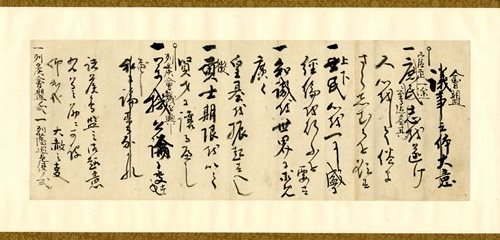 會盟
議事之体大意
官武一途
一庶民志を遂け
人心をして倦ま
さらしむるを欲す
上下
一士民心を一にし盛に
經綸を行ふを要す
一知識を世界に求め
廣く
皇基を振起すへし
徴
一貢士期限を以て
賢才に譲るへし
列侯會議を興し
一万機公論に決し
私に論するなかれ
諸侯會盟之御趣意
右等之筋に可被
仰出哉 大赦之事
一列侯會盟の式 一列藩巡見使の式